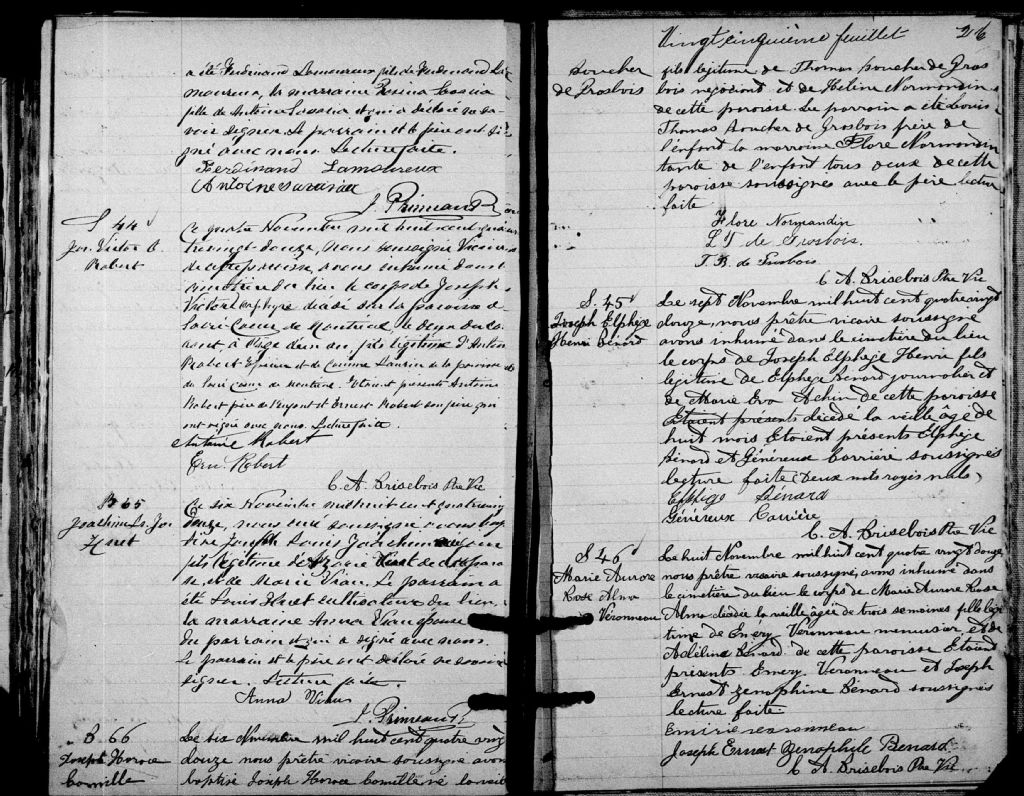 a été Ferdinand Lamoureux fils de Ferdinand La
moureux, la marraine
fille de Antoine qui a déclaré ne sa
voir signer. Le parrain et le père ont si
gné avec nous. Lecture faite.
Ferdinand Lamoureux
Antoine
J. Primeau Ptre
S 44
Jos. Victor
Robert
Ce quatre Novembre mil huit cent qua
tre vingt douze, nous soussigné Vicaire
de cette paroisse, avons inhumé dans le
cimetière du lieu le corps de Joseph
Victor décédé sur la paroisse du
Sacré Coeur de Montréal, le deux du cou
rant, à l'âge d'un an, fils légitime d'Antoine
Robert et de Corinne de la paroisse
du Sacré Coeur de Montréal. Étaient présents Antoine
Robert père de l'enfant et Ernest Robert son frère qui
ont signé avec nous. Lecture faite.
Antoine Robert
Ern. Robert
C. A. Brisebois Ptre Vic
B 65
Joachim Ls. Jos
Huet
Ce six Novembre mil huit cent quatre vingt
douze, nous soussigné avons bap
tisé Joseph Louis Joachim
fils légitime de Huet de cette parois
se, et de Marie Viau. Le parrain a
été Louis Huet cultivateur du lieu,
la marraine Anna Viau épouse
du parrain qui a signé avec nous.
Le parrain et le père ont déclaré ne savoir
signer. Lecture faite.
Anna Viau
J. Primeau Ptre
B 66
Joseph Horace
Camille
Le six Novembre mil huit cent quatre vingt
douze nous prêtre vicaire soussigné avons
baptisé Joseph Horace Camille né la veille
Vingt cinquième feuillet 26
Boucher
de Grosbois
fils légitime de Thomas Boucher de Gros
bois négociant et de Hélène Normandin
de cette paroisse. Le parrain a été Louis
Thomas Boucher de Grosbois frère de
l'enfant la marraine Flore Normandin
tante de l'enfant tous deux de cette
paroisse soussignés avec le père lecture
faite
Flore Normandin
L T de Grosbois.
T. B. de Grosbois
C. A. Brisebois Ptre Vic
S. 45
Joseph Elphège
Henri Bénard
Le sept Novembre mil huit cent quatre vingt
douze, nous prêtre vicaire soussigné
avons inhumé dans le cimetière du lieu
le corps de Joseph Elphège Henri fils
légitime de Elphège Bénard journalier et
de Marie Eva Achin de cette paroisse
Etaient présents décédé la veille âgé de
huit mois Etaient présents Elphège
Bénard et Généreux Carrière soussignés
lecture faite (Deux mots rayés nuls)
Elphège Bénard
Généreux Carrière
C. A. Brisebois Ptre Vic
S 46
Marie Aurore
Rose Alma
Véronneau
Le huit Novembre mil huit cent quatre vingt douze,
nous prêtre vicaire soussigné, avons inhumé dans
le cimetière du lieu le corps de Marie Aurore Rose
Alma décédée la veille âgée de trois semaines fille légi
time de Eméry Véronneau menuisier, et de
Adéline Bénard de cette paroisse Etaient
présents Emery Véronneau et Joseph
Ernest Zénophile Bénard soussignés
lecture faite.
Emérie veronneau
Joseph Ernest Zenophile Benard
C. A. Brisebois Ptre Vic.